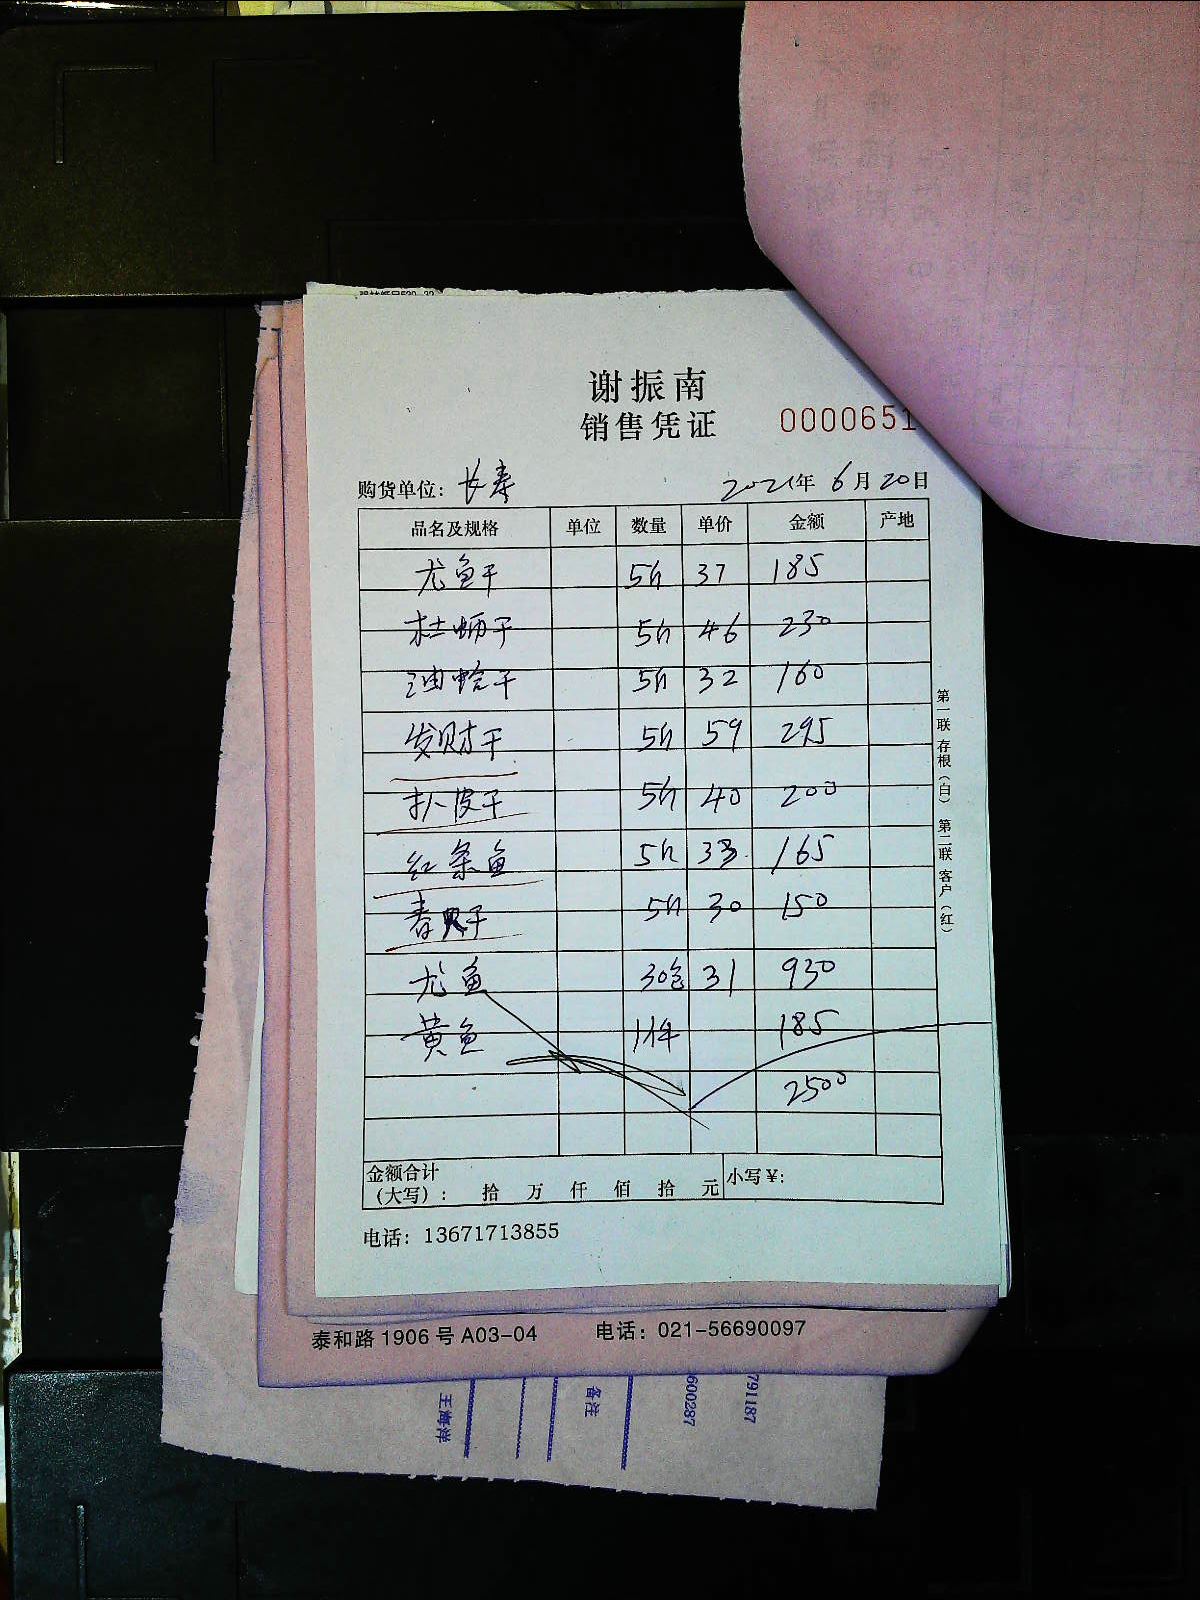 谢振南
销售凭证 0000651
购货单位: 长寿 2021年 6月20日
品名及规格 单位 数量 单价 金额 产地
尤鱼干 5斤 37 185
杜蛎干 5斤 46 230
油蛤干 5斤 32 160
发财干 5斤 59 295
扒皮干 5斤 40 200
红条鱼 5斤 33 165
春 干 5斤 30 150
尤鱼 30包 31 930
黄鱼 1件 185
2500
金额合计
(大写): 拾 万 仟 佰 拾 元 小写¥:
电话: 13671713855
第一联 存根(白) 第二联 客户(红)
泰和路1906号A03-04 电话: 021-56690097
王海洋
备注
600287
791187